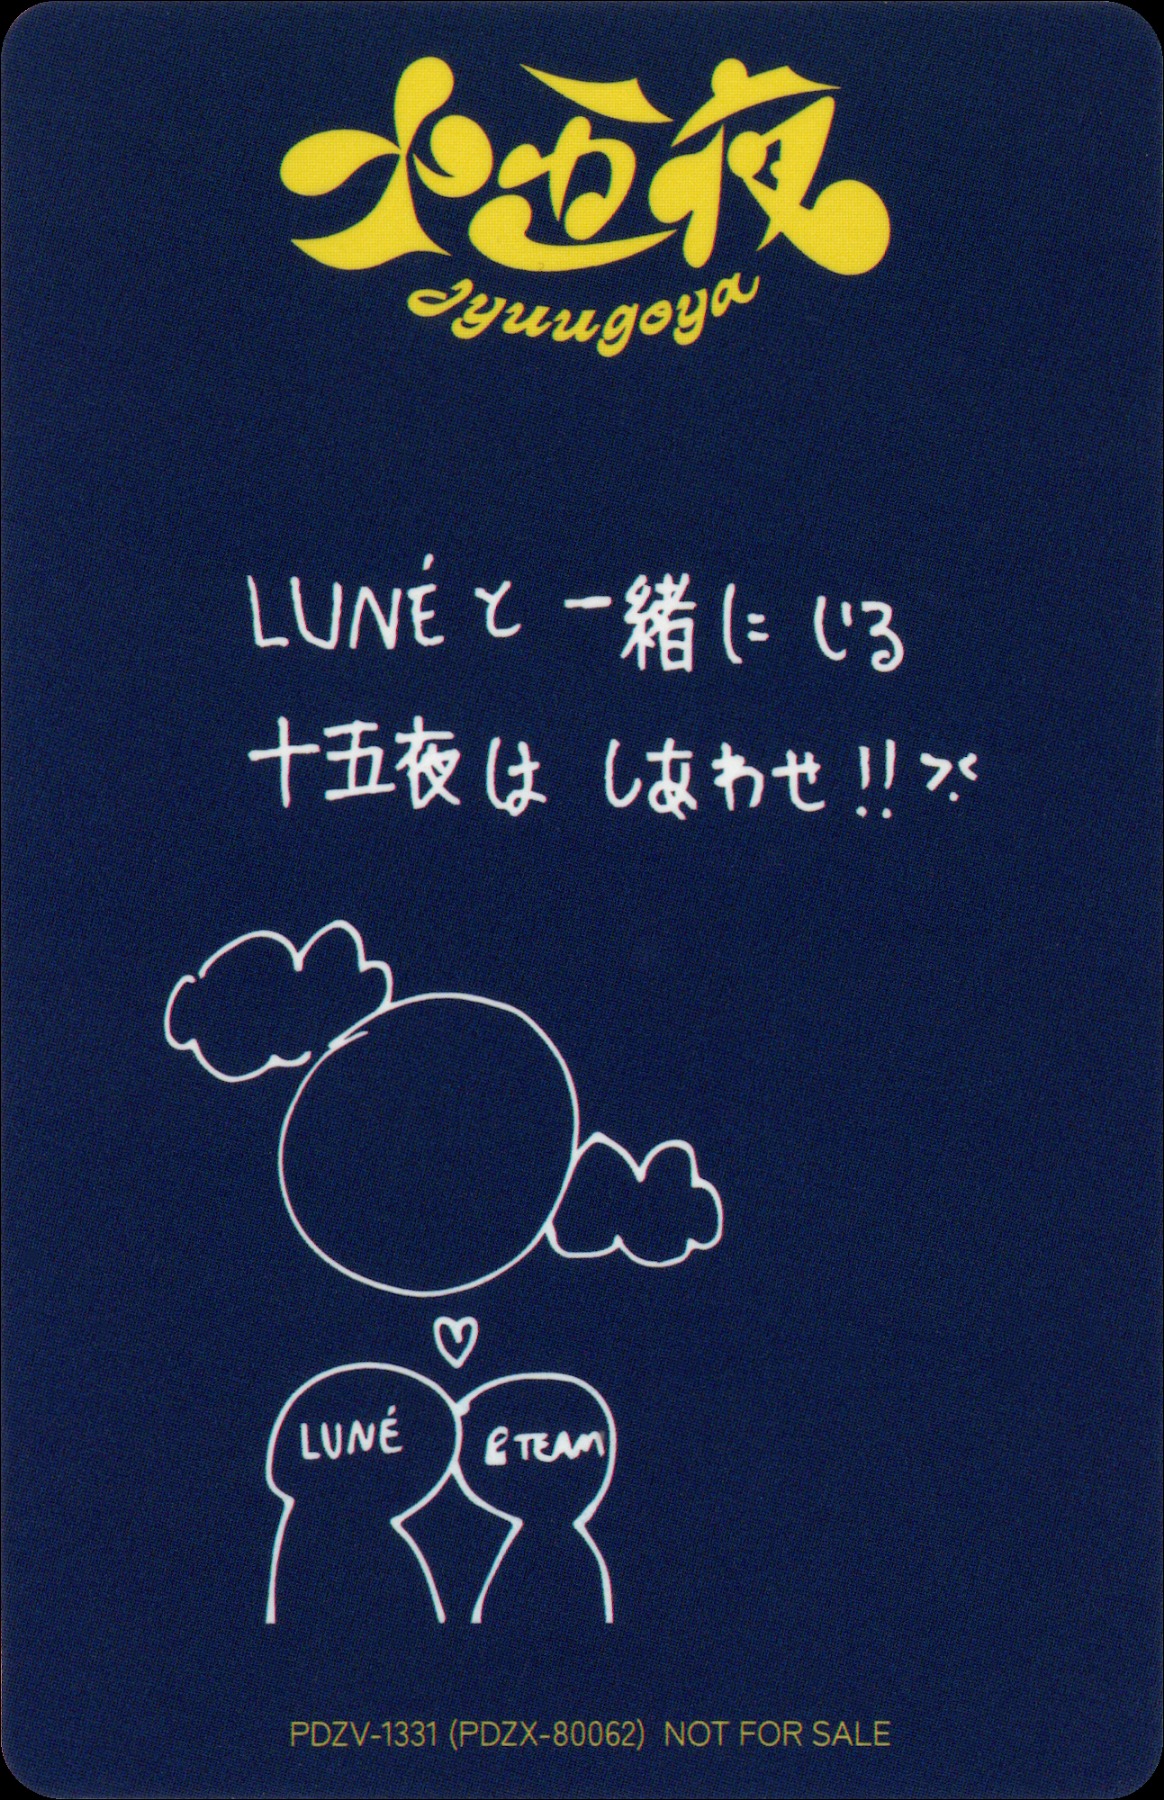 十五夜
Jyuugoya
LUNÉと 一緒に いる
十五夜は しあわせ!! >·<
LUNÉ
&TEAM
PDZV-1331 (PDZX-80062) NOT FOR SALE